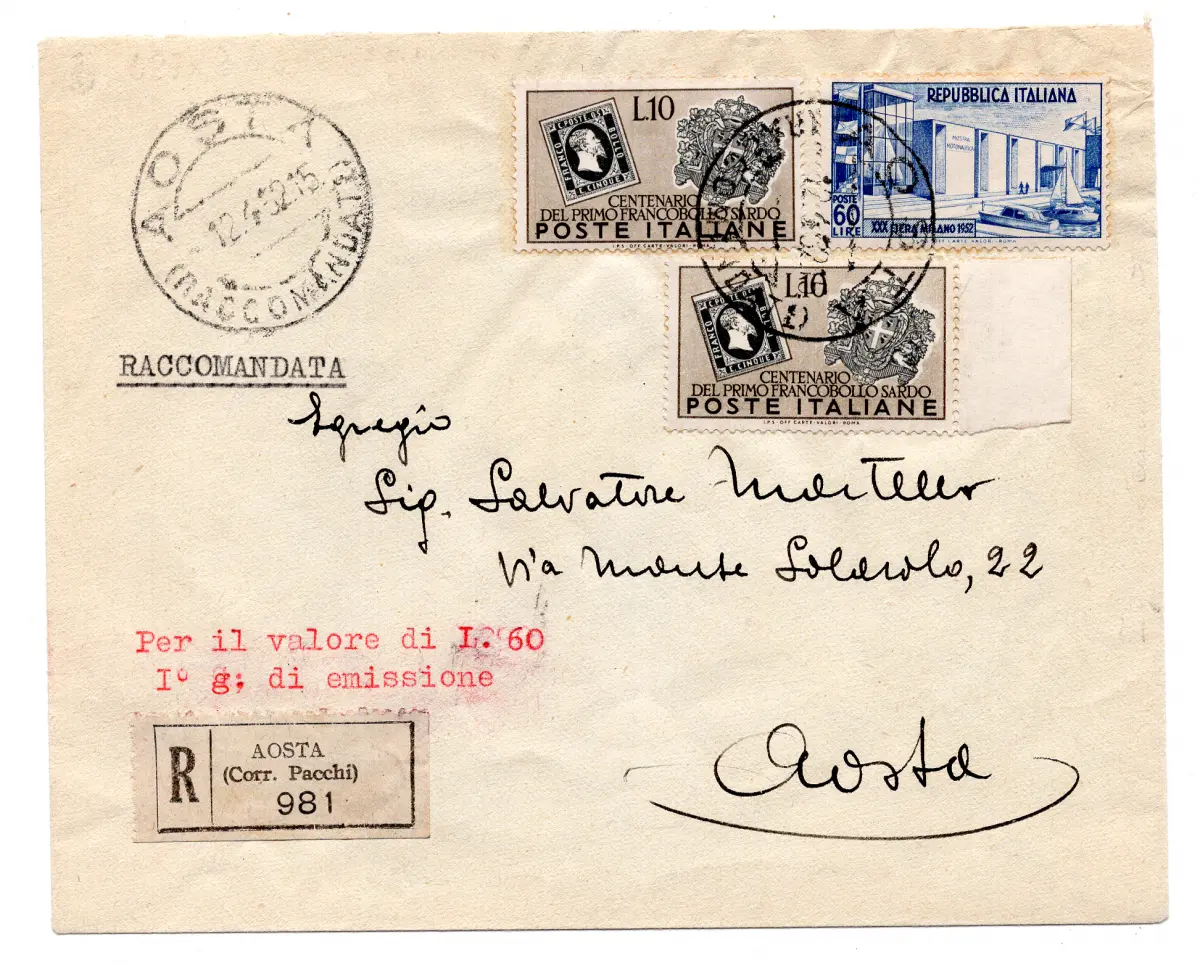 AOSTA
12.4.52.15
(RACCOMANDATE)
FRANCO
C.POSTE DE
BOLLO
C.CINQUE
L.10
CENTENARIO
DEL PRIMO FRANCOBOLLO SARDO
POSTE ITALIANE
I.P.S. OFF. CARTE-VALORI-ROMA
REPUBBLICA ITALIANA
MOSTRA
MOTONAUTICA
POSTE
60
LIRE
XXX FIERA MILANO 1952
OFF. CARTE VALORI - ROMA
FRANCO
C.POSTE DE
C.CINQUE
L.10
CENTENARIO
DEL PRIMO FRANCOBOLLO SARDO
POSTE ITALIANE
I.P.S. OFF. CARTE-VALORI-ROMA
RACCOMANDATA
Egregio
Sig. Salvatore Martello
Via Monte Solarolo, 22
Per il valore di L. 60
I° g: di emissione
R
AOSTA
(Corr. Pacchi)
981
Aosta